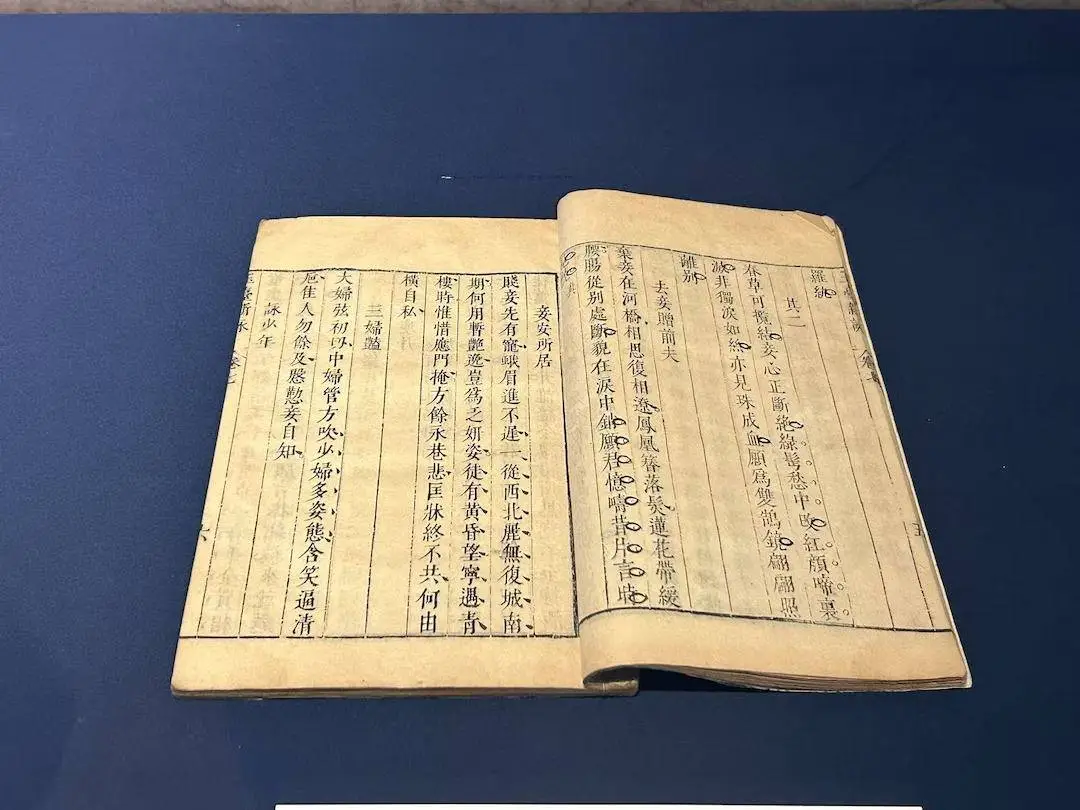 卷七 五
羅紈
其二
春草可攬結妾心正斷絕綠鬢愁中改紅顏啼裏
滅非獨淚如絲亦見珠成血願爲雙鵲鏡翩翩照
離別
去妾贈前夫
棄妾在河橋相思復相遼鳳凰簪落鬢蓮花帶緩
腰腸從別處斷貌在淚中銷願君憶疇昔片言時
妾安所居
賤妾先有寵蛾眉進不遲一從西北麗無復城南
期何用暫艷逸豈爲乏妍姿徒有黃昏望寧遇青
樓時惟惜應門掩方餘永巷悲匡牀終不共何由
橫自私
三婦豔
大婦弦初切中婦管方吹少婦多姿態含笑逼清
卮佳人勿餘及慇懃妾自知
詠少年
玉臺新詠 卷七 六